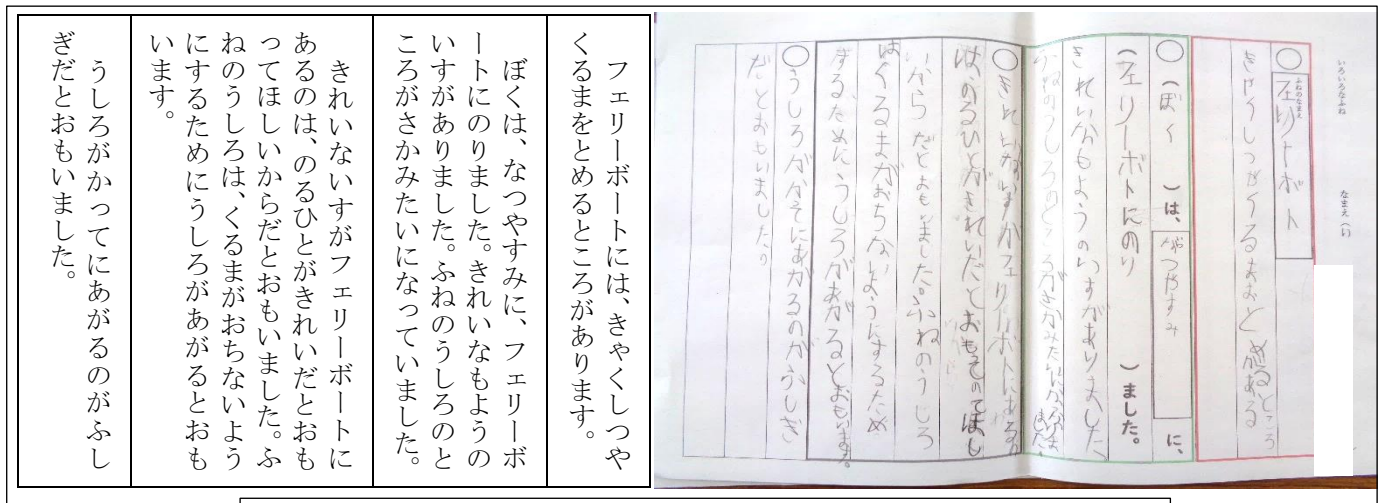 いろいろなふね　なまえ
ふねのなまえ
○フェリーボート
きゃくしつやくるまおとめるところがある
○（ぼく　）は、なつやすみ　に、
（フェリーボトにのり　）ました。
きれいなもようのいすがありました
ふねのうしろのところがさかみたいに
○きれいないすがフェリーボトにある
は、のるひとがきれいだとおもってほし
いからだとおもいました。ふねのうしろ
はくるまがおちないようにするため
するためにうしろがあがるとおもいます。
○うしろがかってにあがるのがふしぎ
だとおもいました。
フェリーボートには、きゃくしつや
くるまをとめるところがあります。
ぼくは、なつやすみに、フェリーボ
ートにのりました。きれいなもようの
いすがありました。ふねのうしろのと
ころがさかみたいになっていました。
きれいないすがフェリーボートに
あるのは、のるひとがきれいだとおも
ってほしいからだとおもいました。ふ
ねのうしろは、くるまがおちないよう
にするためにうしろがあがるとおも
います。
うしろがかってにあがるのがふし
ぎだとおもいました。